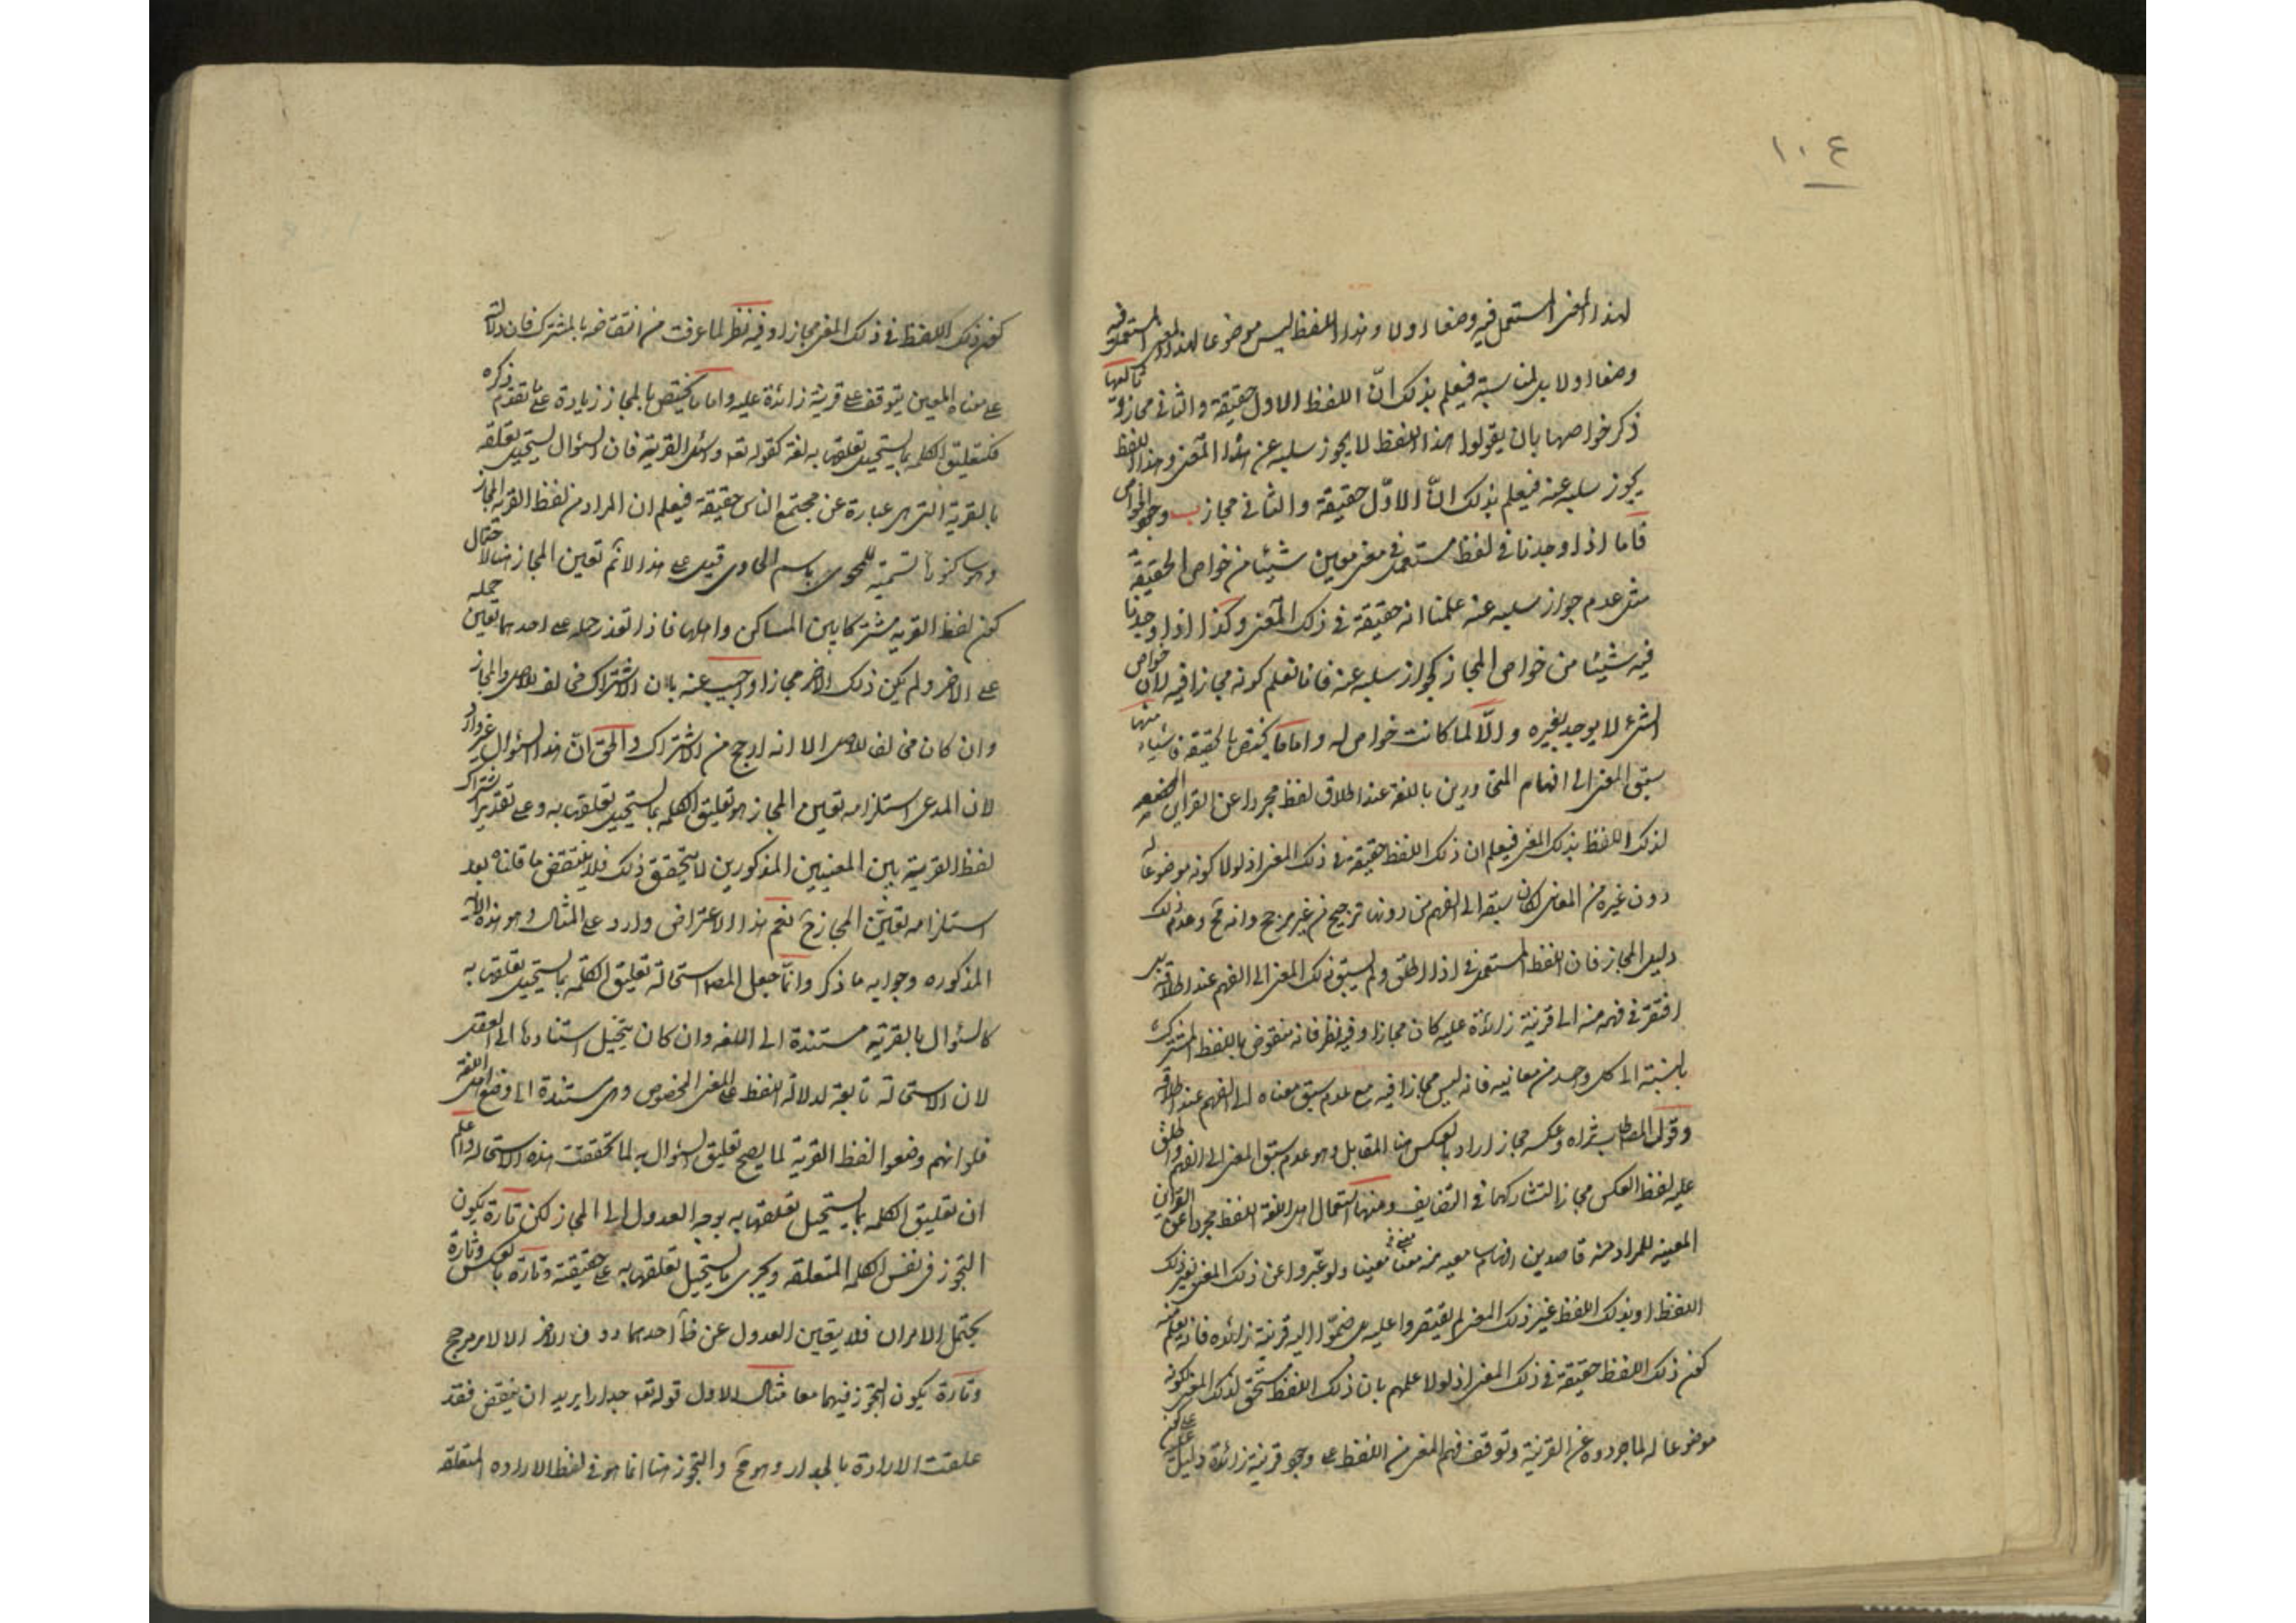 ١٠٤
لهذا المعنى المستعمل فيه وضعا اولا وهذا اللفظ ليس موضوعا لهذا المعنى المستعمل فيه
وضعا اولا بل لمناسبة فيعلم بذلك انّ اللفظ الاول حقيقة والثانى مجاز و ثالثها
ذكر خواصها بان يقولوا هذا اللفظ لا يجوز سلبه عن هذا المعنى وهذا اللفظ
يجوز سلبه عنه فيعلم بذلك انّ الاوّل حقيقة والثانى مجاز ب وجود الخواص
فاما اذا وجدنا فى لفظ مستعمل فى معنى معين شيئا من خواص الحقيقة
مثل عدم جواز سلبه عنه علمنا انه حقيقة فى ذلك المعنى وكذا اذا وجدنا
فيه شيئا من خواص المجاز كجواز سلبه عنه فانا نعلم كونه مجازا فيه لان خواص
الشئ لا يوجد لغيره والّا لما كانت خواص له واما ما يختص بالحقيقة فاشياء منها
سبق المعنى الى افهام المتحاورين باللغة عند اطلاق لفظ مجردا عن القراين
لذلك اللفظ بذلك المعنى فيعلم ان ذلك اللفظ حقيقة فى ذلك المعنى اذ لولا كونه موضوعا له
دون غيره من المعانى لكان سبقه الى الفهم من دونها ترجيح من غير مرجح وانه مح وعدم ذلك
دليل المجاز فان اللفظ المستعمل فى اذا اطلق ولم يسبق ذلك المعنى الى الفهم عند اطلاقه بل
افتقر فى فهمه منه الى قرينة زائدة عليه كان مجازا وفيه نظر فانه منقوض باللفظ المشترك
بالنسبة الى كل واحد من معانيه فانه ليس مجازا فيه مع عدم سبق معناه الى الفهم عند اطلاقه
وقول المص طاب ثراه وعكسه مجاز اراد بالعكس هنا المقابل وهو عدم سبق المعنى الى الفهم واطلق
عليه لفظ العكس مجازا لتشاركهما فى التضايف ومنها استعمال اهل اللغة اللفظ مجردا عن القراين
المعينه للمراد منه قاصدين افهام معنى معينا ولو عبّروا عن ذلك المعنى بغير ذلك
اللفظ او بذلك اللفظ غير ذلك المعنى لم يقتصروا عليه بل ضمّوا اليه قرينة زائده فانه يعلم منه
كون ذلك اللفظ حقيقة فى ذلك المعنى اذ لولا علمهم بان ذلك اللفظ مستحق لذلك المعنى لكونه
موضوعا له لما جردوه عن القرينة وتوقف فهم المعنى من اللفظ على وجود قرينة زائدة دليل على
كون ذلك اللفظ فى ذلك المعنى مجازا وفيه نظر لما عرفت من انتقاضه بالمشترك فان دلالته
على معناه المعين يتوقف على قرينة زائدة عليه واما ما يختص بالمجاز زيادة على ما تقدم ذكره
فكتعليق الكلمة بما يستحيل تعلقها به لغة كقوله تعه واسئل القرية فان السؤال يستحيل تعلقه
بالقرية التى هى عبارة عن مجتمع الناس حقيقة فيعلم ان المراد من لفظ القرية المجاز
وهو كونها تسمية للمحوى باسم الحاوى قيل على هذا لا نم تعين المجاز هنا لاحتمال
كون لفظ القرية مشتركا بين المساكن واهلها فاذا تعذر حمله على احدهما تعين حمله
على الاخر ولم يكن ذلك الاخر مجازا واجيب عنه بان الاشتراك مخالف للاصل والمجاز
وان كان مخالف للاصل الا انه ارجح من الاشتراك والحق انّ هذا السؤال غير وارد
لان المدعى استلزامه تعين المجاز هو تعليق الكلمة بما يستحيل تعلقها به وعلى تقدير اشتراك
لفظ القرية بين المعنيين المذكورين لا يتحقق ذلك فلا ينتقض ما قلناه بعد
استلزامه لتعين المجاز ح نعم هذا الاعتراض وارد على المثال وهو هذه الاية
المذكوره وجوابه ما ذكر وانّما جعل المص استحالة تعليق الكلمة بما يستحيل تعلقها به
كالسؤال بالقرية مستندة الى اللغه وان كان يتخيل استنادها الى العقل
لان الاستحالة تابعة لدلالة اللفظ على المعنى المخصوص وهى مستندة الى وضع اهل اللغة
فلو انهم وضعوا لفظ القرية لما يصح تعليق السؤال به لما تحققت هذه الاستحالة واعلم
ان تعليق الكلمه بما يستحيل تعلقها به يوجب العدول الى المجاز لكن تارة يكون
التجوز فى نفس الكلمه المتعلقه ويجرى ما يستحيل تعلقها به على حقيقته وتارة بالعكس وتارة
يحتمل الامران فلا يتعين العدول عن ظ احدهما دون الاخر الا لامر مرجح
وتارة يكون التجوز فيهما معا مثال الاول قوله تعه جدارا يريد ان ينقض فقد
علقت الارادة بالجدار وهو مح والتجوز هنا انما هو فى لفظ الاراده المتعلقه